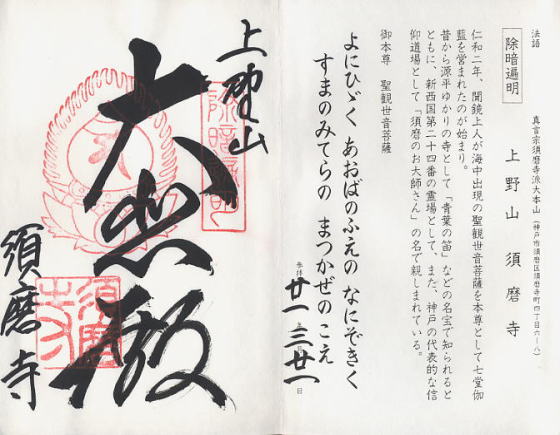 法語
除暗遍明
真言宗須磨寺派大本山(神戸市須磨区須磨寺町四丁目六ー八)
上野山 須磨寺
仁和二年、聞鏡上人が海中出現の聖観世音菩薩を本尊として七堂伽
藍を営まれたのが始まり。
昔から源平ゆかりの寺として「青葉の笛」などの名宝で知られると
ともに、新西国第二十四番の霊場として、また、神戸の代表的な信
仰道場として「須磨のお大師さん」の名で親しまれている。
御本尊 聖観世音菩薩
よにひゞく あおばのふえの なにぞきく
すまのみてらの まつかぜのこえ
参拝 廿一 三 廿一 日
上野山
除暗遍明
須磨寺
須磨寺